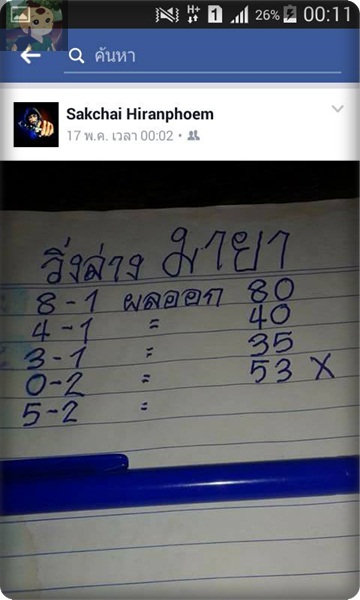 H+ 1 26% 00:11
ค้นหา
Sakchai Hiranphoem
17 พ.ค. เวลา 00:02
วิ่งล่าง มายา
8-1 ผลออก 80
4-1 = 40
3-1 = 35
0-2 = 53 X
5-2 =